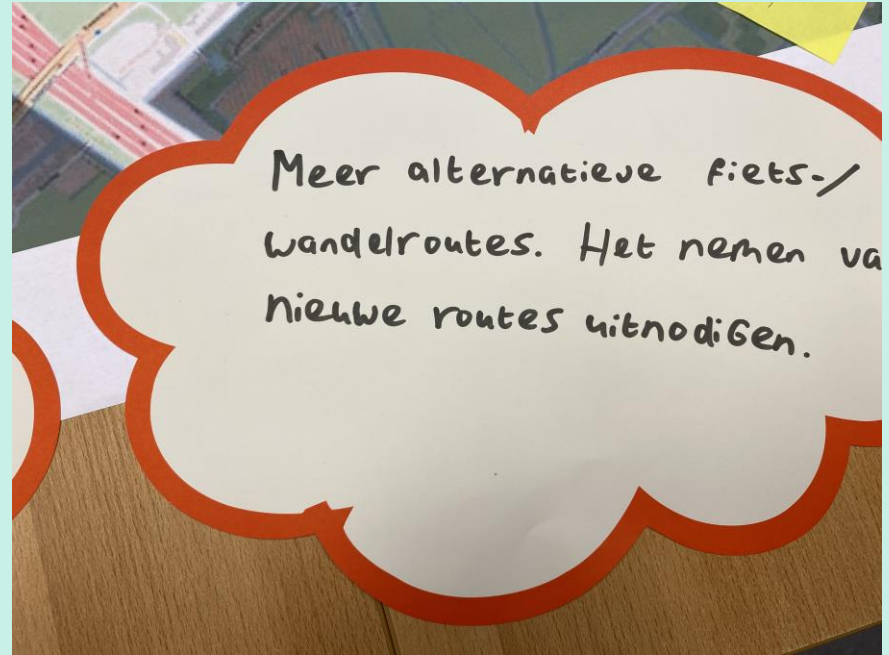 Meer alternatieve fiets-/
wandelroutes. Het nemen va
nieuwe routes uitnodigen.